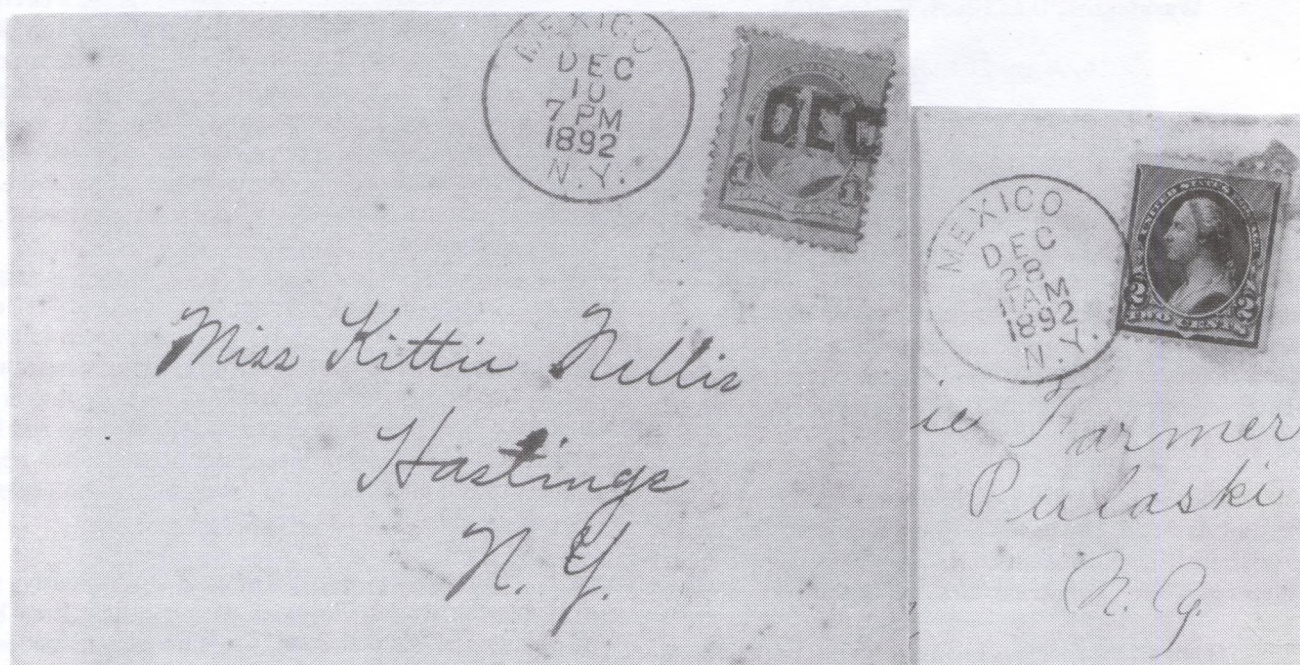 MEXICO
DEC
10
7 PM
1892
N.Y.
DEC
1 1
Miss Kittie Nellis
Hastings
N. Y.
MEXICO
DEC
28
11 AM
1892
N.Y.
UNITED STATES POSTAGE
2 2
TWO CENTS
ie Farmer
Pulaski
N. Y.